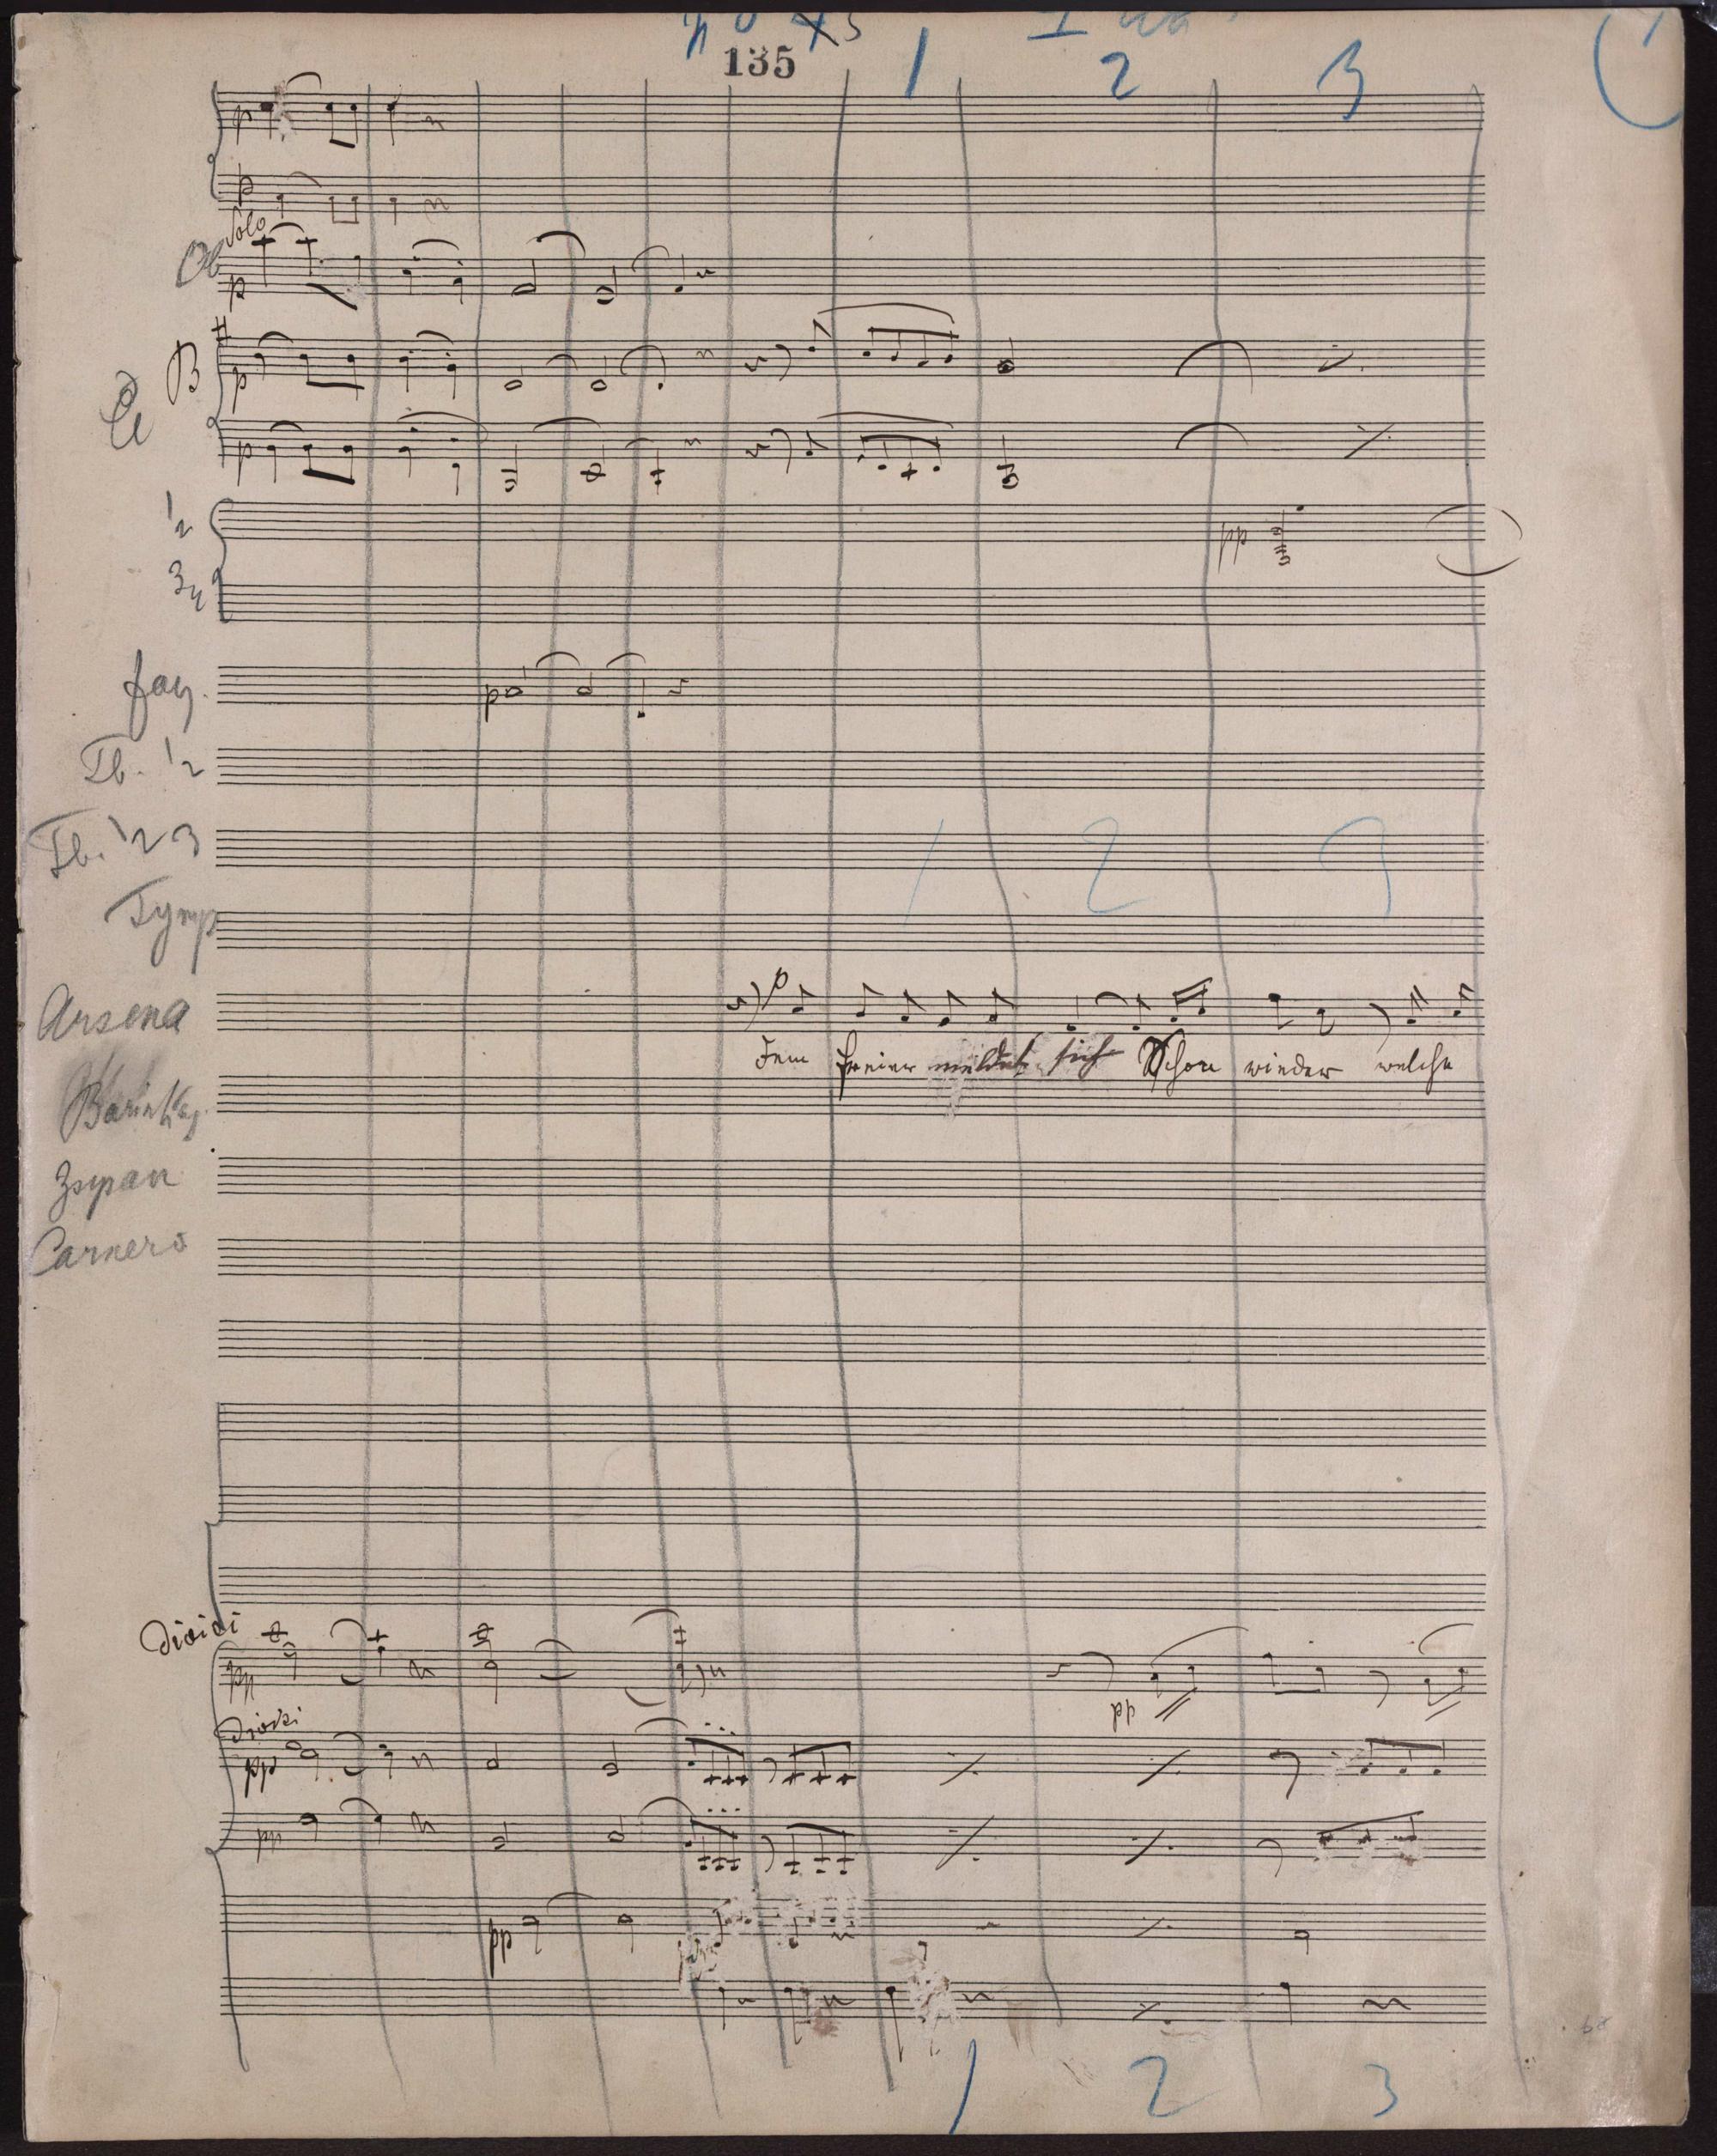 135
1 2 3
p
p
Solo
Ob
p
B
p
Cl
p
1/2
pp
3/4
fag.
p
Tb. 1/2
Tb. 1 2 3
1 2 3
Tymp
p
Arsena
Ein Freier meldet sich Schon wieder welche
Barinkay
Zsupan
Carnero
Divisi
pp
pp
Divisi
pp
pp
pp
1 2 3